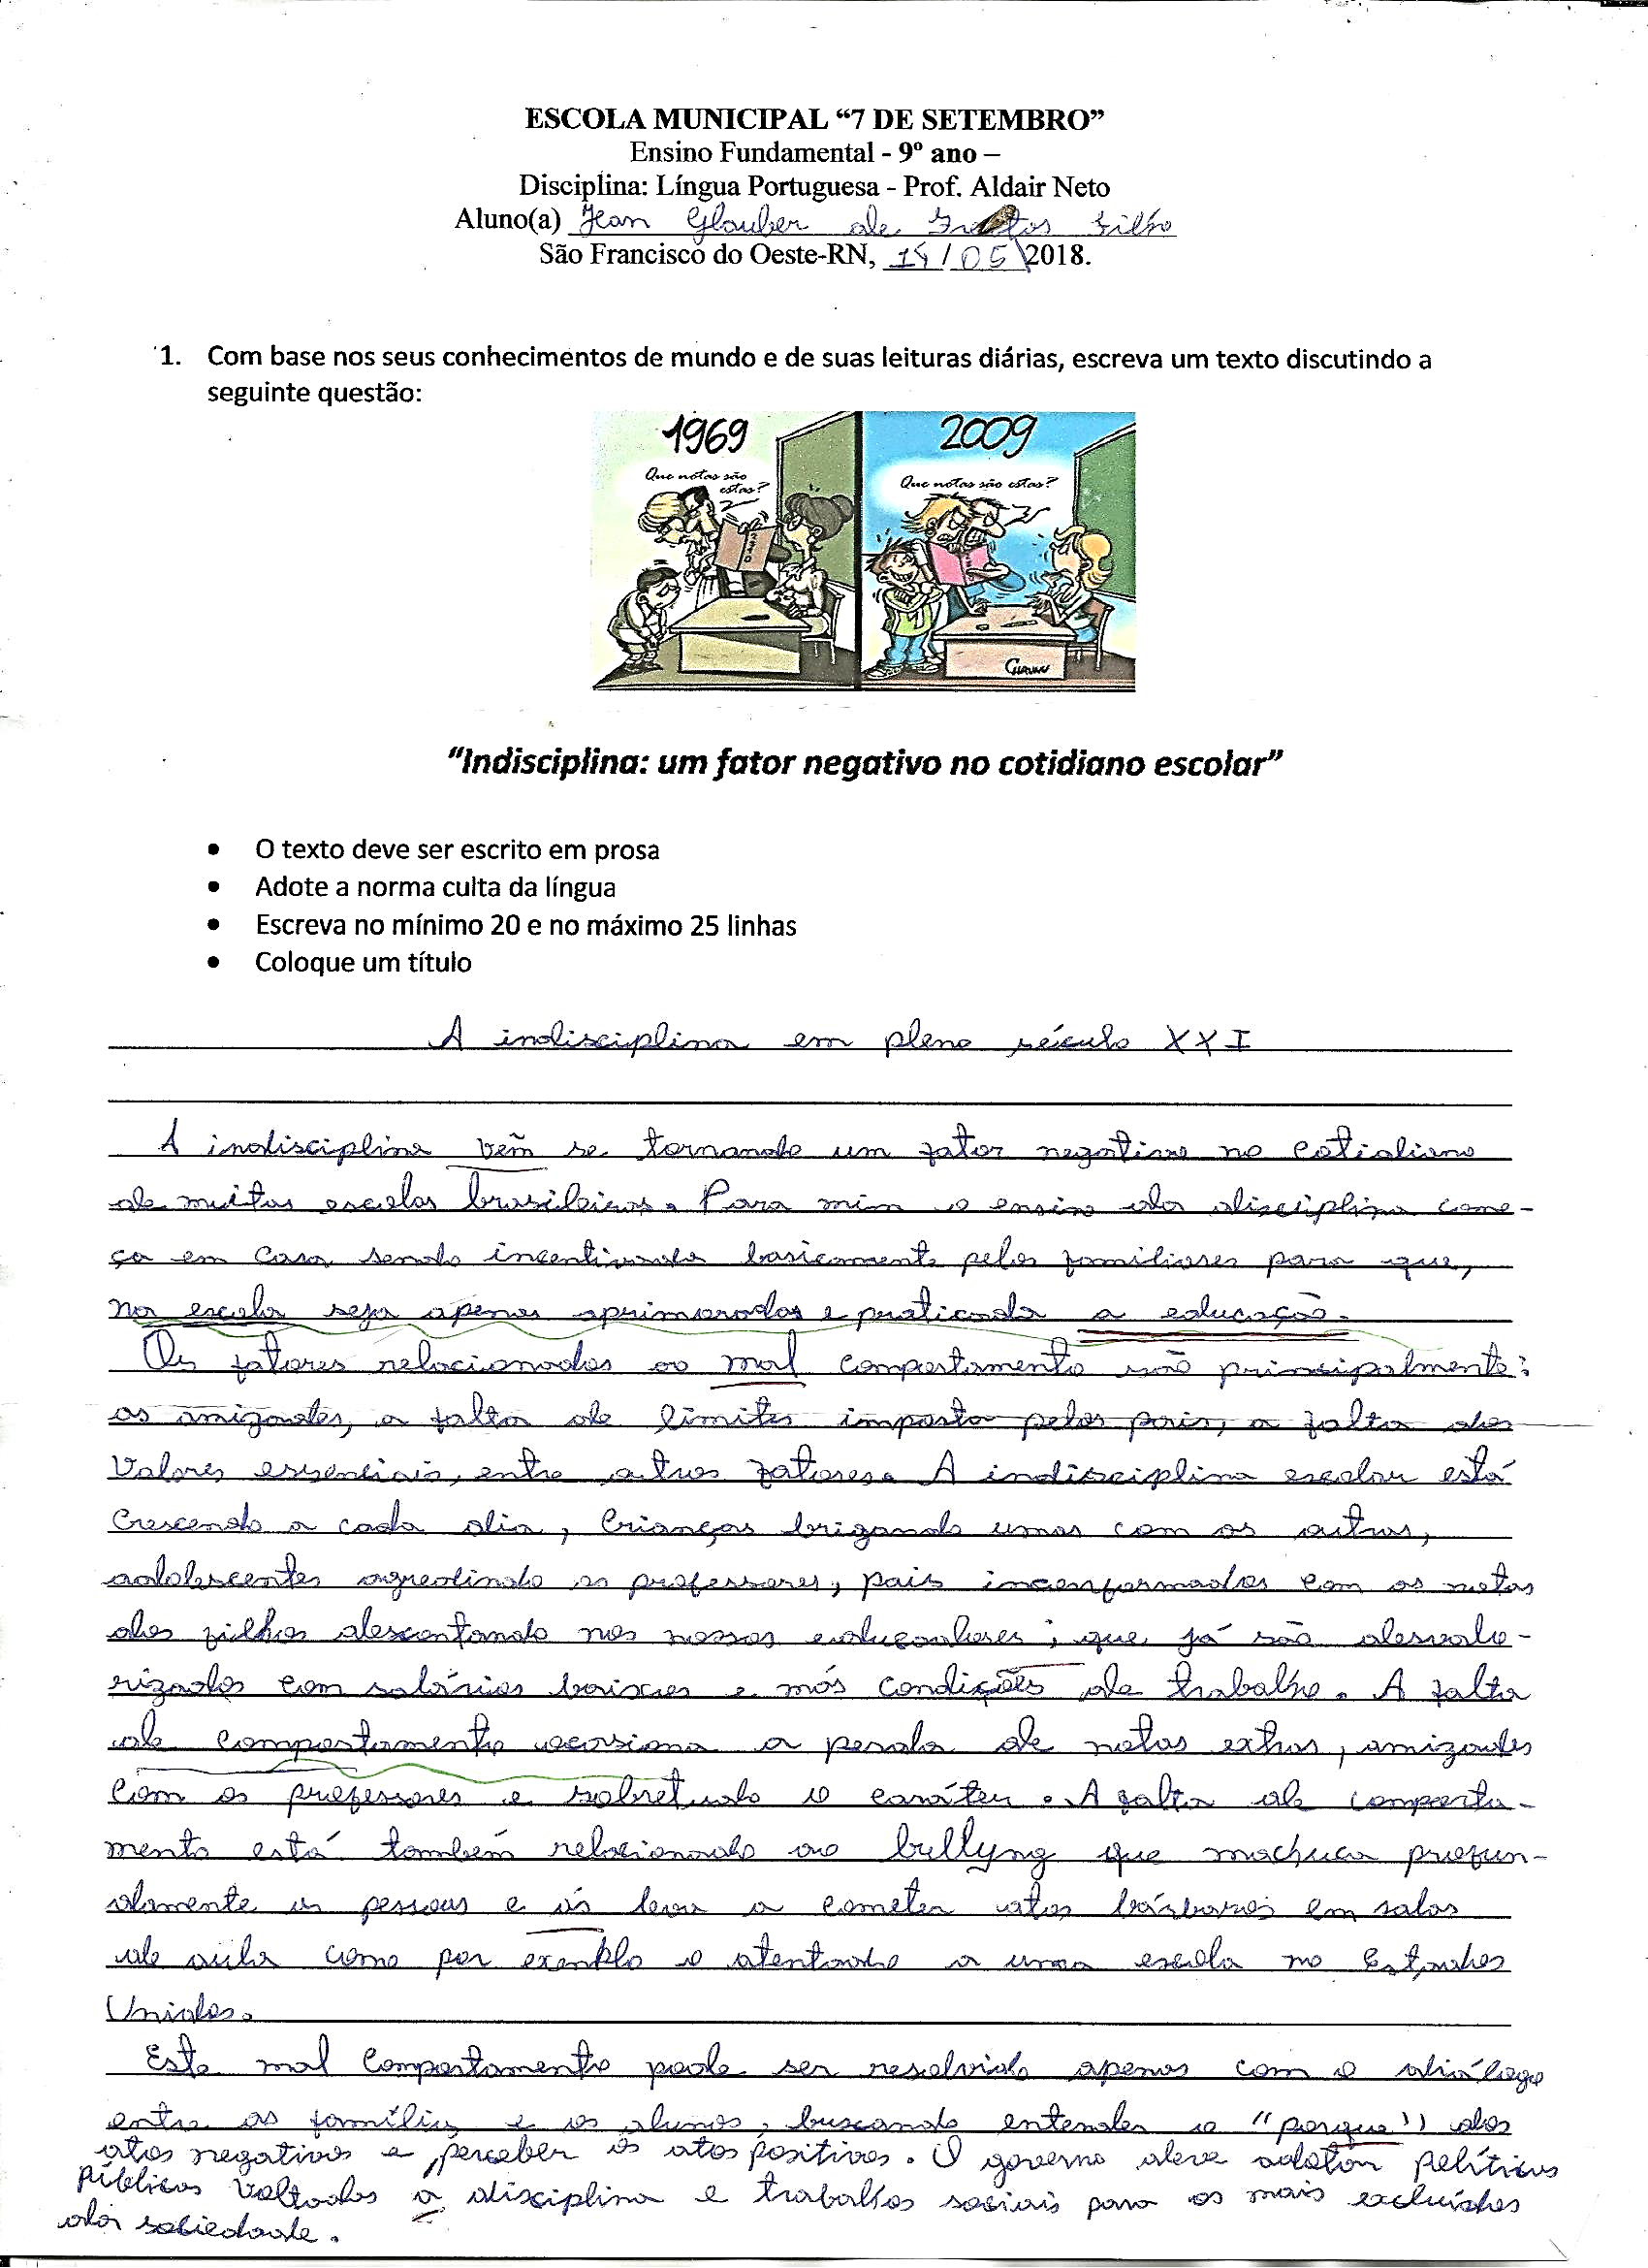 ESCOLA MUNICIPAL “7 DE SETEMBRO”
Ensino Fundamental - 9º ano –
Disciplina: Língua Portuguesa - Prof. Aldair Neto
Aluno(a) Jean Glauber de Freitas Filho
São Francisco do Oeste-RN, 14/05\2018.
1. Com base nos seus conhecimentos de mundo e de suas leituras diárias, escreva um texto discutindo a
seguinte questão:
1969
Que notas são
estas?
2009
Que notas são estas?
“Indisciplina: um fator negativo no cotidiano escolar”
• O texto deve ser escrito em prosa
• Adote a norma culta da língua
• Escreva no mínimo 20 e no máximo 25 linhas
• Coloque um título
A indisciplina em pleno século XXI
A indisciplina vêm se tornando um fator negativo no cotidiano
de muitas escolas brasileiras. Para mim o ensino da disciplina come-
ça em casa sendo incentivada basicamente pelos familiares para que,
na escola seja apenas aprimorados e praticada a educação.
Os fatores relacionados ao mal comportamento são principalmente:
as amizades, a falta de limites imposta pelos pais, a falta dos
valores essenciais, entre outros fatores. A indisciplina escolar está
crescendo a cada dia, crianças brigando umas com as outras,
adolescentes agredindo os professores, pais inconformados com as notas
dos filhos descontando nos nossos educadores; que já são desvalo-
rizados com salários baixos e más condições de trabalho. A falta
de comportamento ocasiona a perda de notas extras, amizades
com os professores e sobretudo o caráter. A falta de comporta-
mento está também relacionado ao bullyng que machuca profun-
damente as pessoas e às leva a cometer atos bárbaros em salas
de aula como por exemplo o atentado a uma escola no Estados
Unidos.
Este mal comportamento pode ser resolvido apenas com o diálogo
entre as famílias e os alunos, buscando entender o "porque" dos
atos negativos e perceber os atos positivos. O governo deve adotar políticas
públicas voltados a disciplina e trabalhos sociais para os mais excluídos
da sociedade.